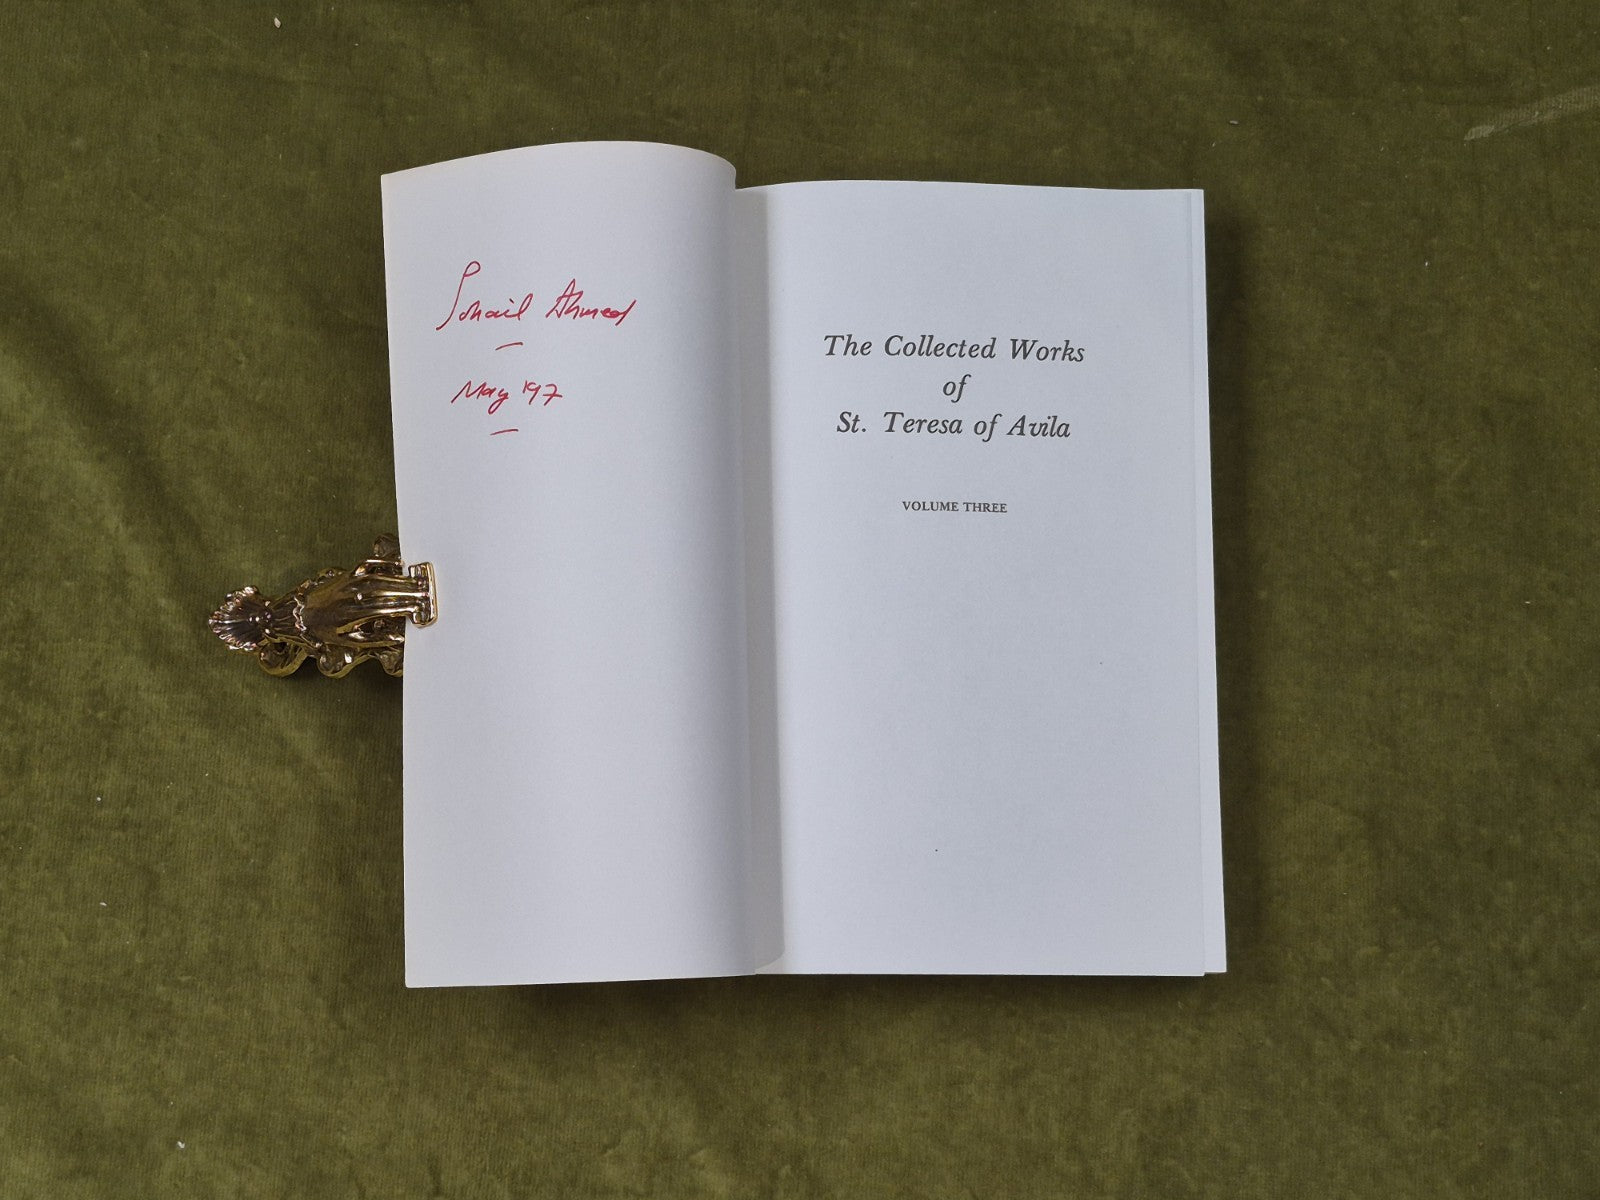 Sohail Ahmed
May '97
The Collected Works
of
St. Teresa of Avila
VOLUME THREE